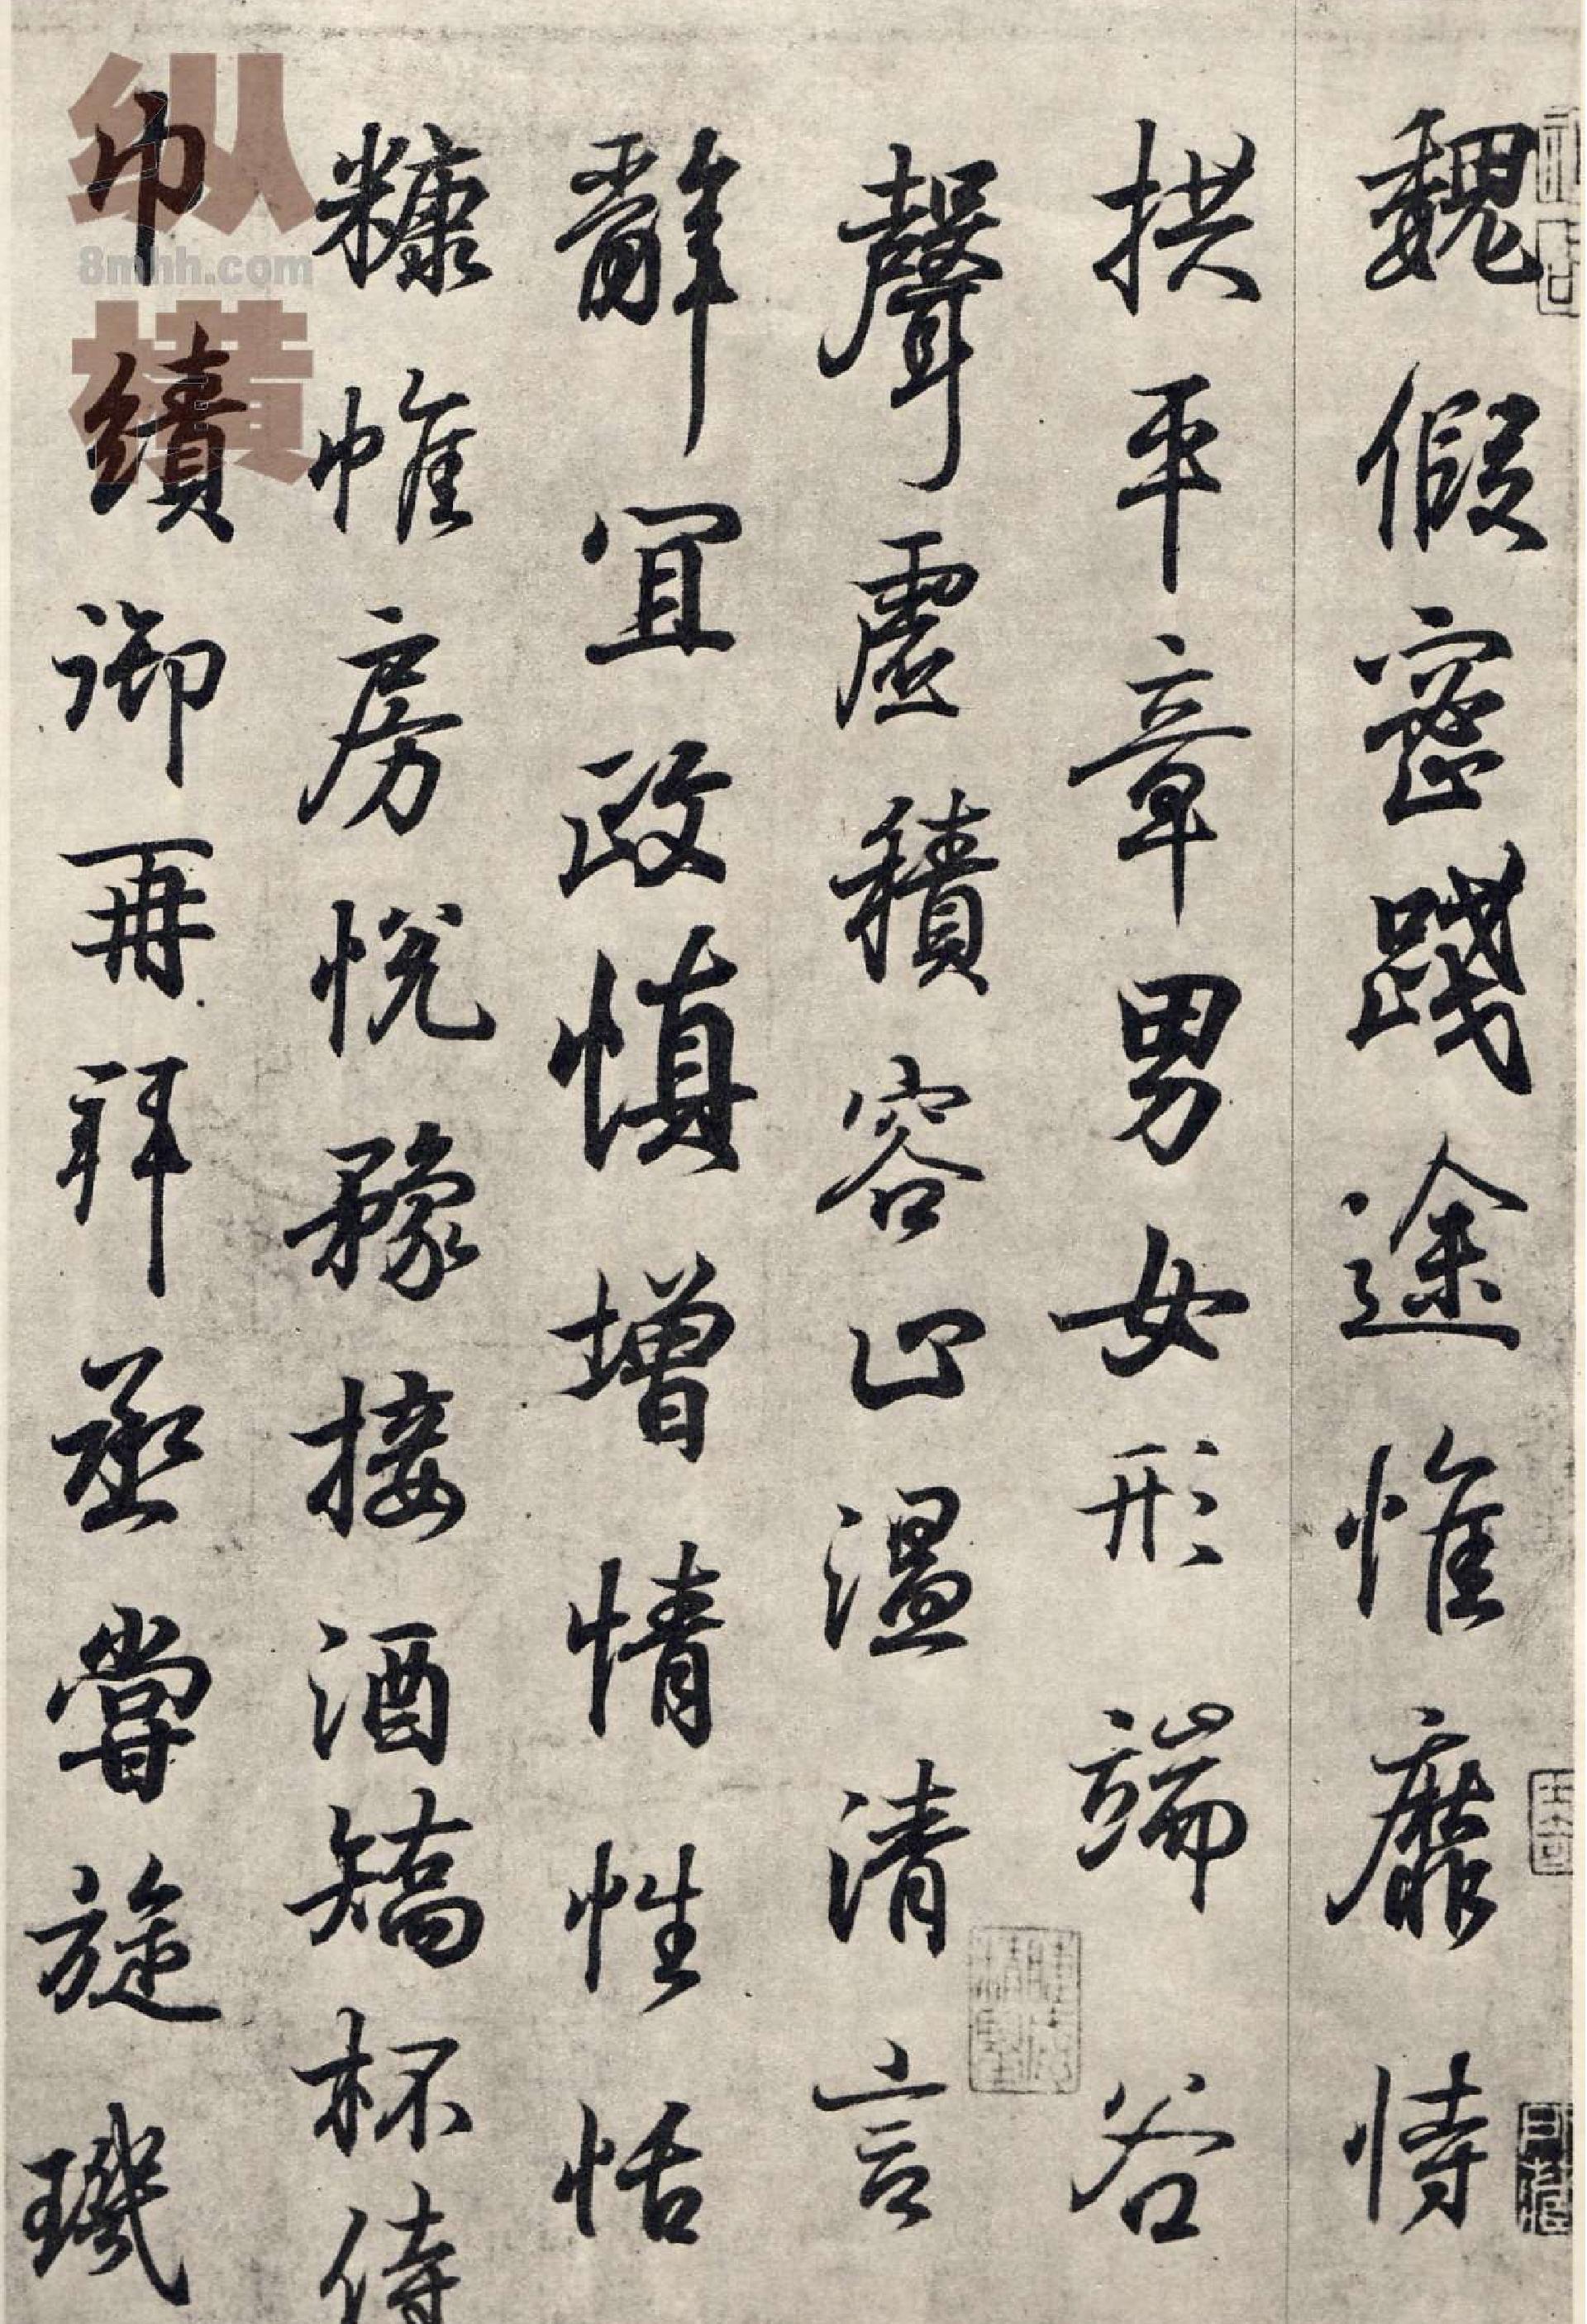 魏假密踐途惟靡恃
拱平章男女形端谷
聲虛積容止溫清言
辭宜政慎增情性恬
糠帷房悅豫接酒矯杯侍
巾績御再拜丞嘗旋璣
纵横
8mhh.com